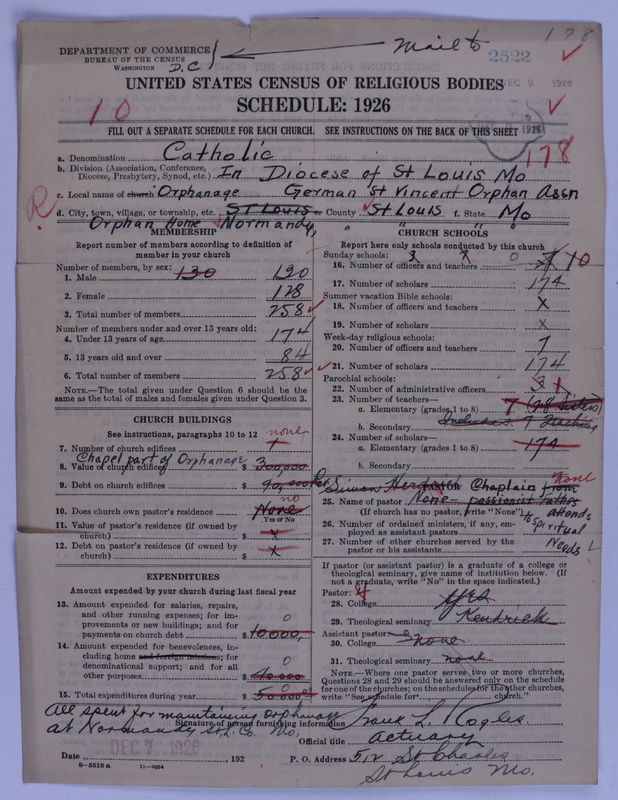 178
DEPARTMENT OF COMMERCE
BUREAU OF THE CENSUS
WASHINGTON D.C.
Mail to
2522
DEC 9 1926
UNITED STATES CENSUS OF RELIGIOUS BODIES
SCHEDULE: 1926
10
1926
FILL OUT A SEPARATE SCHEDULE FOR EACH CHURCH. SEE INSTRUCTIONS ON THE BACK OF THIS SHEET
178
a. Denomination Catholic
b. Division (Association, Conference, Diocese, Presbytery, Synod, etc.) In Diocese of St Louis Mo
c. Local name of church Orphanage German St Vincent Orphan Assn
R
d. City, town, village, or township, etc. St Louis e. County St Louis f. State Mo
Orphan Home Normandy, " " "
MEMBERSHIP
Report number of members according to definition of member in your church
Number of members, by sex:
1. Male 130 130
2. Female 128
3. Total number of members 258
Number of members under and over 13 years old:
4. Under 13 years of age 174
5. 13 years old and over 84
6. Total number of members 258
NOTE.—The total given under Question 6 should be the same as the total of males and females given under Question 3.
CHURCH BUILDINGS
See instructions, paragraphs 10 to 12
none
7. Number of church edifices 1
Chapel part of Orphanage 3
8. Value of church edifices $ 300,000
9. Debt on church edifices $ 90,000
no
10. Does church own pastor's residence None
Yes or No
11. Value of pastor's residence (if owned by church) $ x
12. Debt on pastor's residence (if owned by church) $ x
EXPENDITURES
Amount expended by your church during last fiscal year
13. Amount expended for salaries, repairs, and other running expenses; for improvements or new buildings; and for payments on church debt $ 10,000, 0
14. Amount expended for benevolences, including home and foreign missions; for denominational support; and for all other purposes $ 40,000 0
15. Total expenditures during year $ 50,000 0
CHURCH SCHOOLS
Report here only schools conducted by this church
Sunday schools:
16. Number of officers and teachers 10
17. Number of scholars 174
Summer vacation Bible schools:
18. Number of officers and teachers X
19. Number of scholars X
Week-day religious schools:
20. Number of officers and teachers 7
21. Number of scholars 174
Parochial schools:
22. Number of administrative officers 3 1
23. Number of teachers—
a. Elementary (grades 1 to 8) 7 (28 Sisters)
b. Secondary Includes 7 Teaching
24. Number of scholars—
a. Elementary (grades 1 to 8) 174
b. Secondary
Simon PASTOR Chaplain from
none
25. Name of pastor None passionist fathers
(If church has no pastor, write "None") attends
26. Number of ordained ministers, if any, employed as assistant pastors spiritual
27. Number of other churches served by the pastor or his assistants Needs
If pastor (or assistant pastor) is a graduate of a college or theological seminary, give name of institution below. (If not a graduate, write "No" in the space indicated.)
Pastor:
28. College yes
29. Theological seminary Kendrick
Assistant pastor—
30. College none
31. Theological seminary none
NOTE.—Where one pastor served two or more churches, Questions 28 and 29 should be answered only on the schedule for one of the churches; on the schedules for the other churches, write "See schedule for church."
All spent for maintaining Orphanage
at Normandy St L. Co. Mo,
Signature of person furnishing information Frank L. Kogles
Official title actuary
DEC 7 1926
Date , 192
P. O. Address 512 St Charles
St Louis Mo.
8—5518 a 11—9054